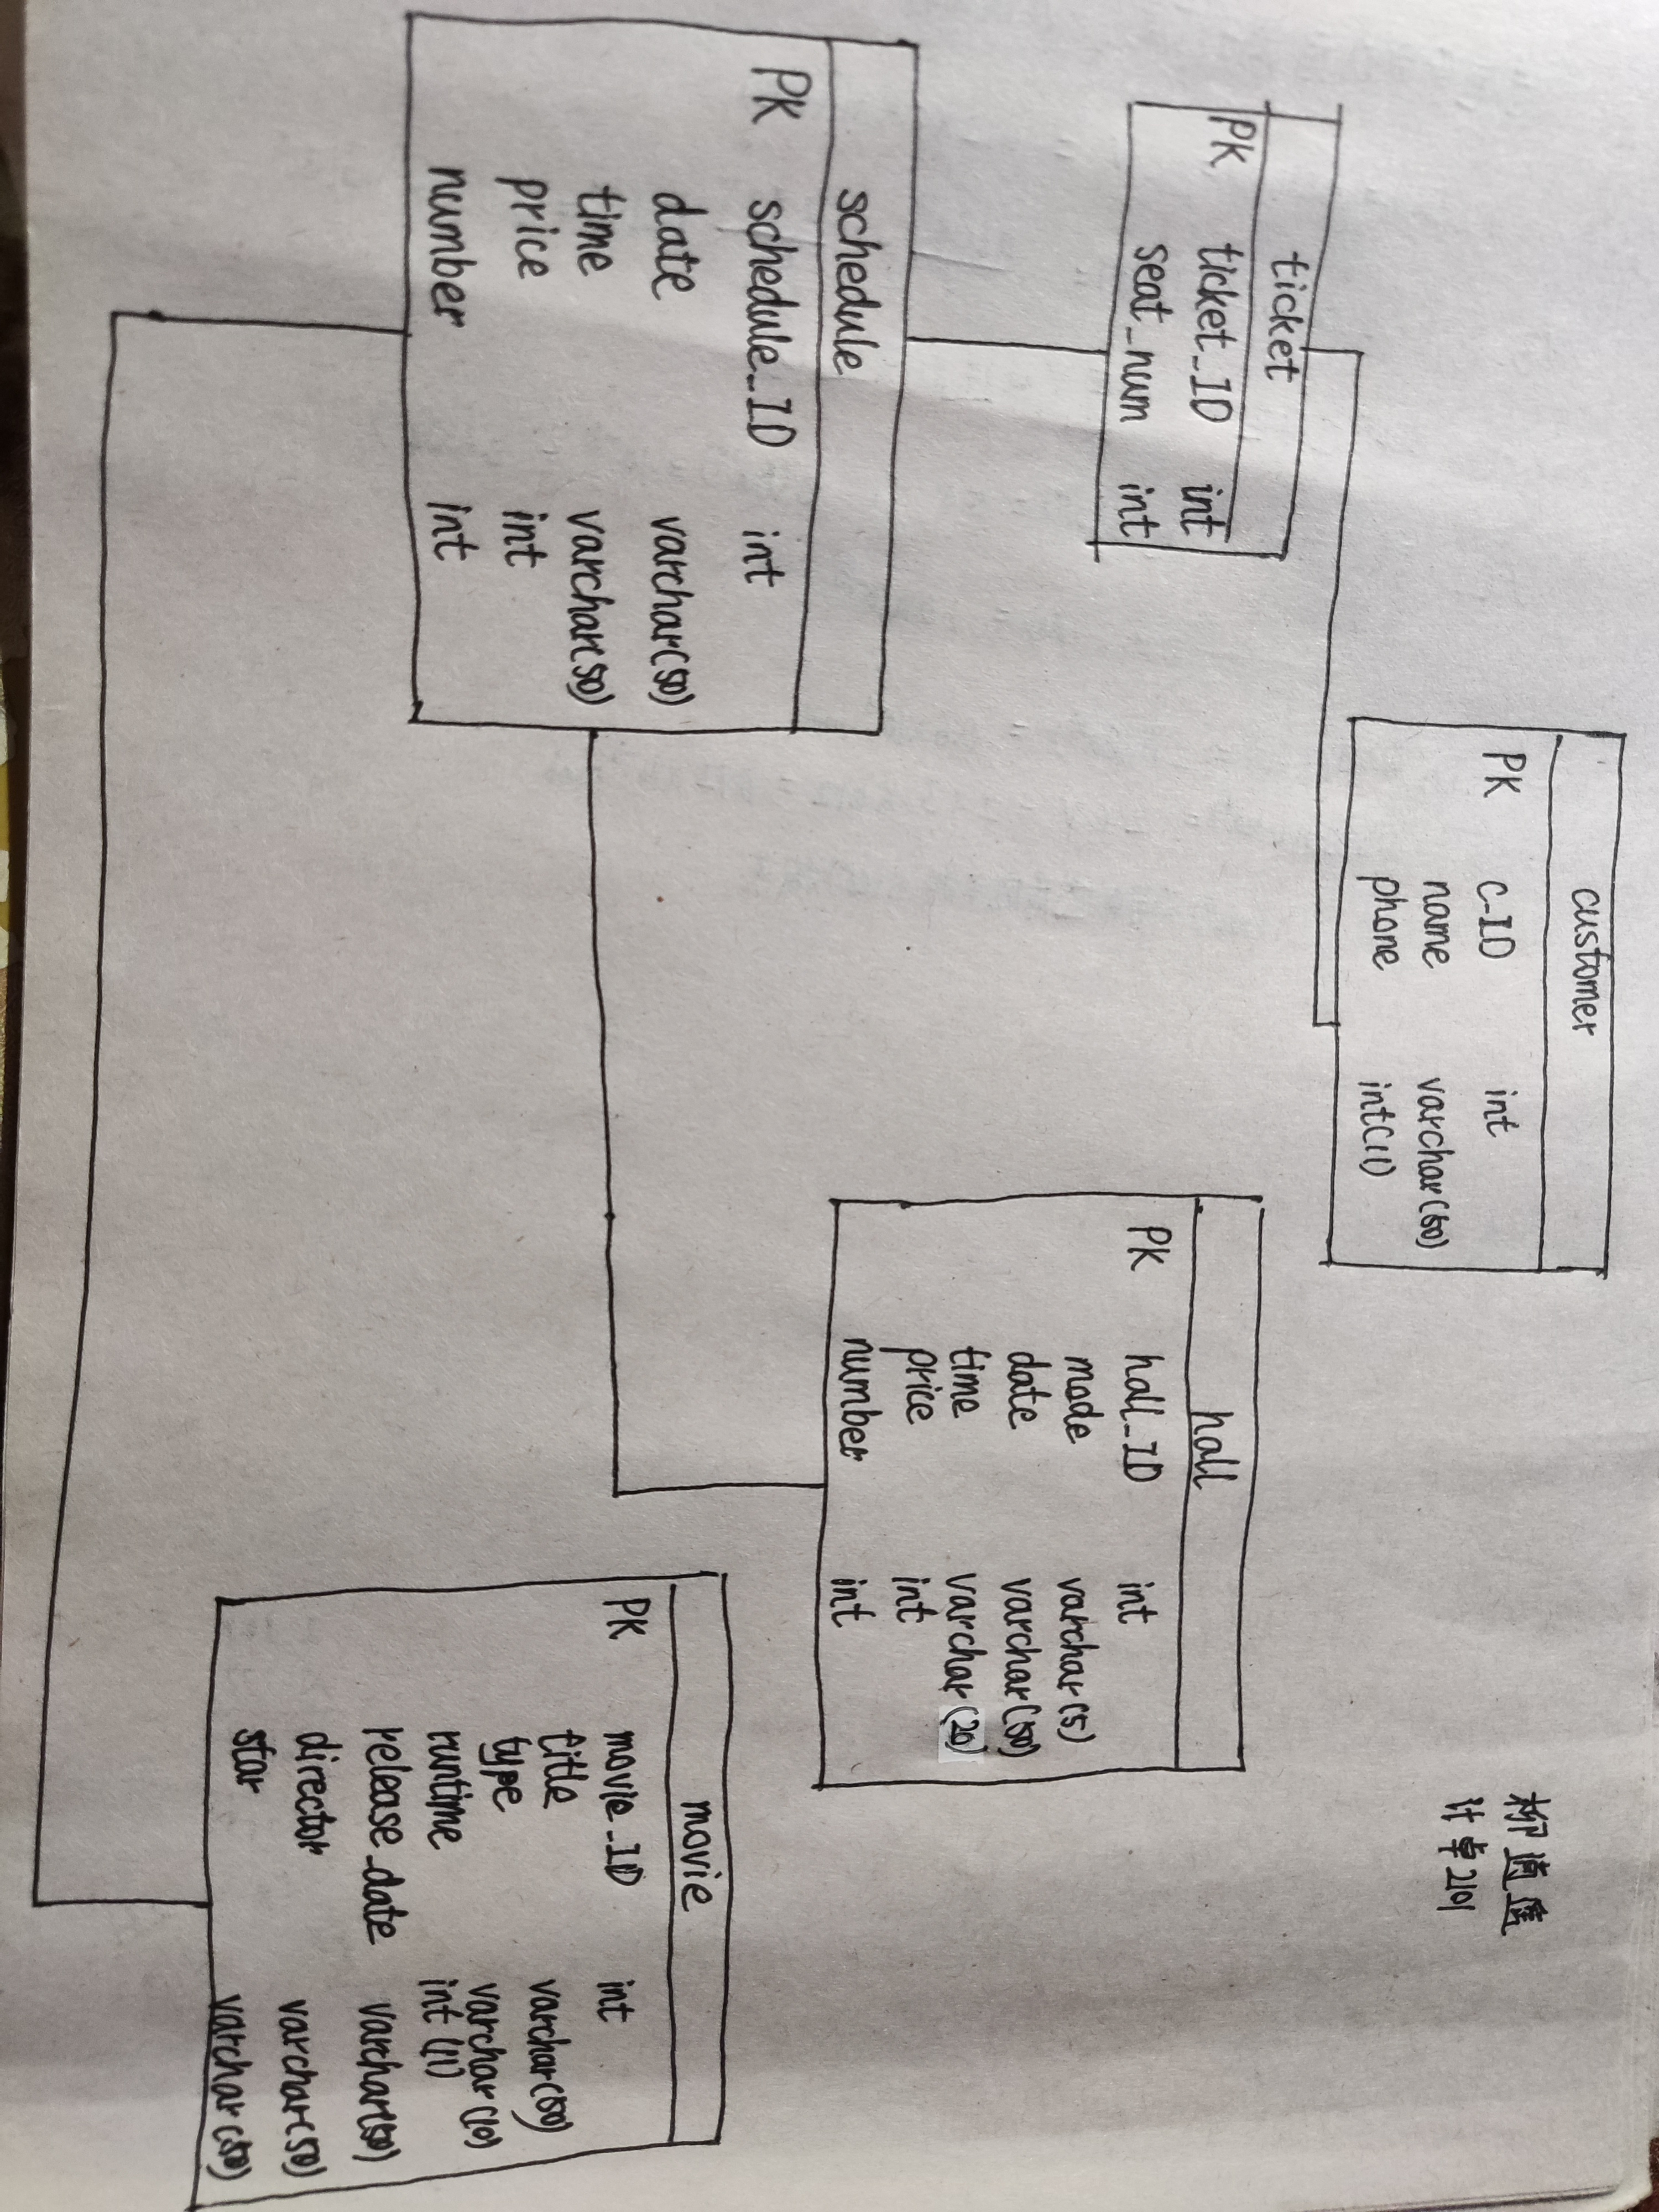 customer
PK c_ID int
name varchar(50)
phone int(11)
柳逍遥
计卓2101
ticket
PK ticket_ID int
seat_num int
hall
PK hall_ID int
mode varchar(5)
date varchar(50)
time varchar(20)
price int
number int
schedule
PK schedule_ID int
date varchar(50)
time varchar(50)
price int
number int
movie
PK movie_ID int
title varchar(50)
type varchar(10)
runtime int(11)
release_date varchar(50)
director varchar(50)
star varchar(50)